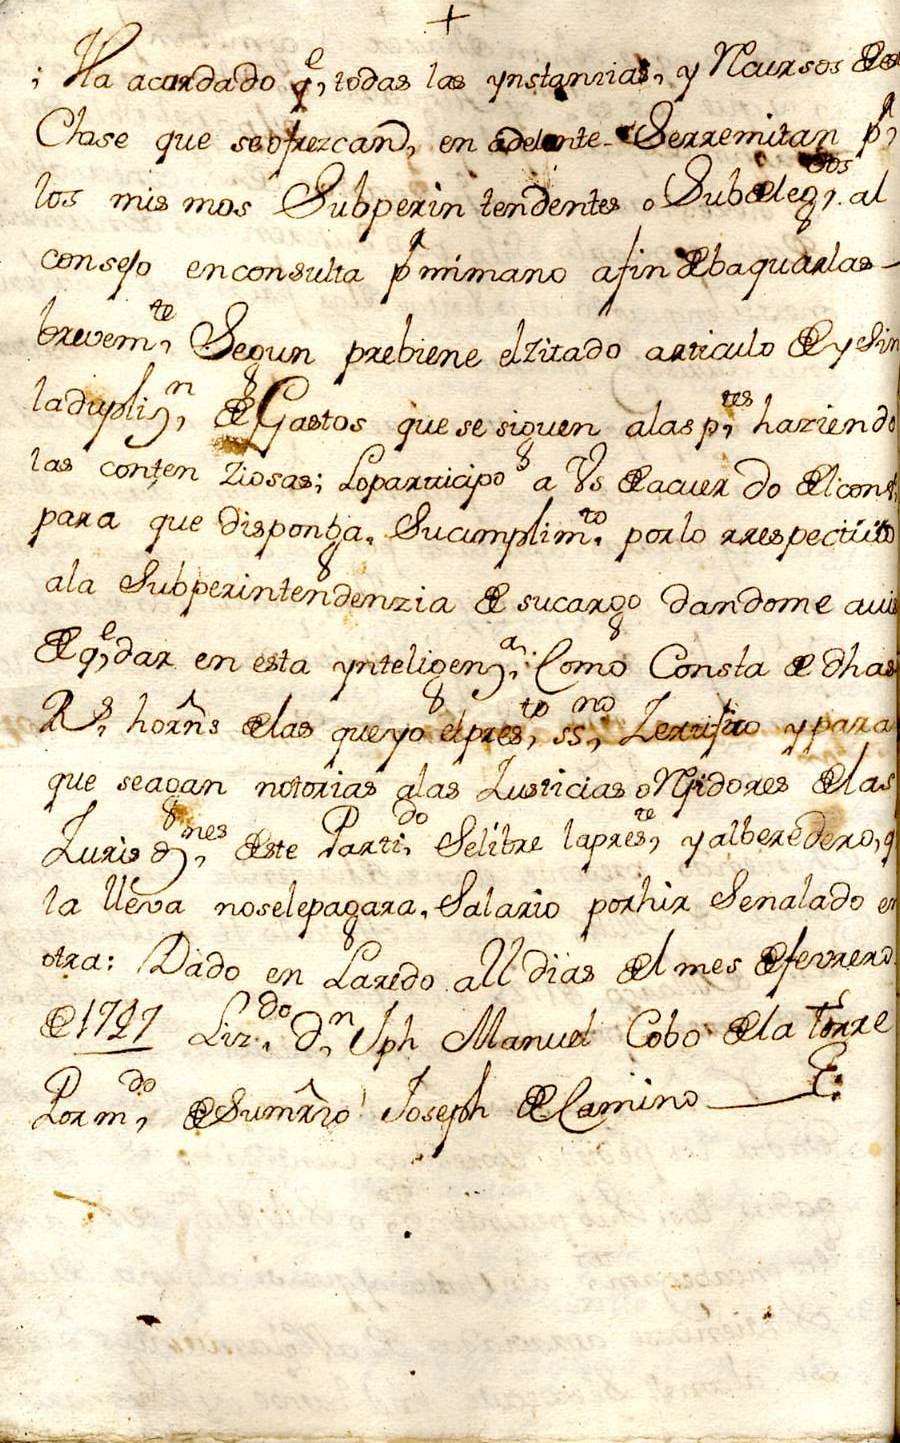 +
; Ha acordado q̃e, todas las ynstancias, y Rcursos de
Clase que seofrezcan, en adelante Serremitan pr,
los mis mos Subperin tendentes o Subdelegdos, al
consejo enconsulta pr mimano afin debaquarlas
brevemte, Segun prebiene elzitado articulo de y Sin
de Gastos que se siguen alasptes, haziendo
las conten ziosas; Loparticipo a Vs deacuer do delcons
para que disponga, Sucumplimto, porlo rrespectiuo
ala Subperintendenzia de sucargo dandome auis
de qe, dar en esta ynteligena,: Como Consta de dhas
Rs, horns delas queyo elpresto, ssno, Zertifico ypara
que seagan notorias alas Justicias o Rjidores delas
Jurisdnes, deste Partido, Selibre lapreste, yalberedero, q
la lleva noselepagara, Salario porhir Senalado en
otra: Dado en Laredo a 11 dias del mes defevrero
de 1727 Lizdo, Dn, Jph Manuel Cobo dela Torre
Por mdo, deSumrd Joseph delCamino